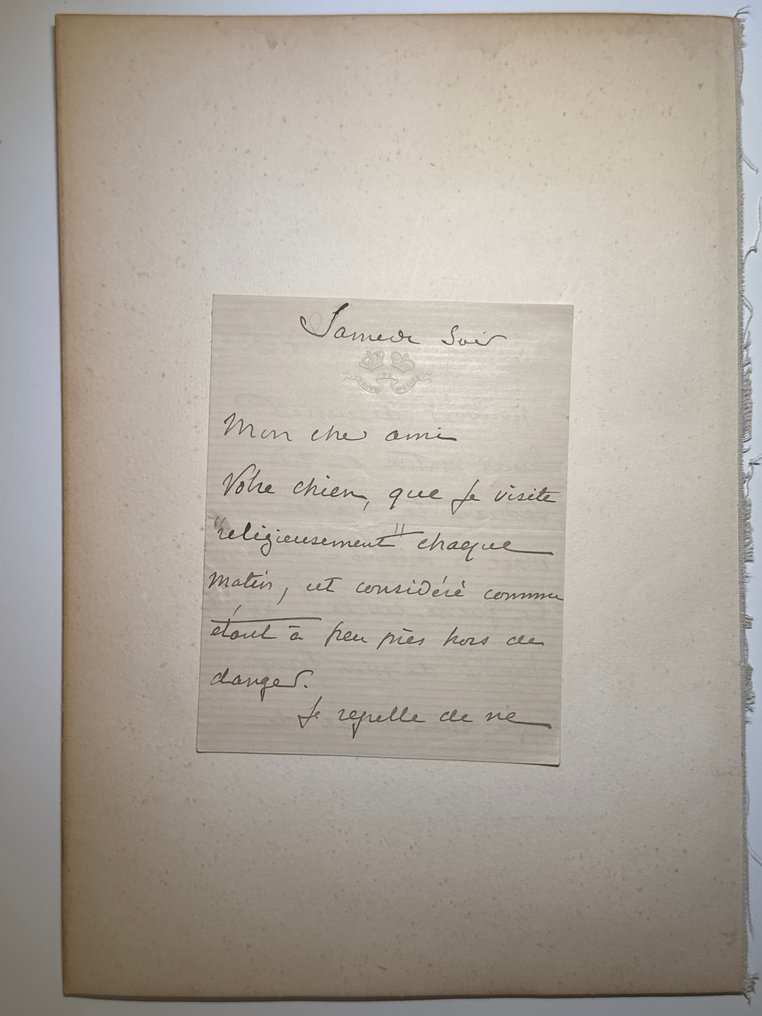 Samedi Soir
Mon cher ami
Votre chien, que je visite
"religieusement" chaque
matin, est considéré comme
étant à peu près hors de
danger.
Je regrette de ne